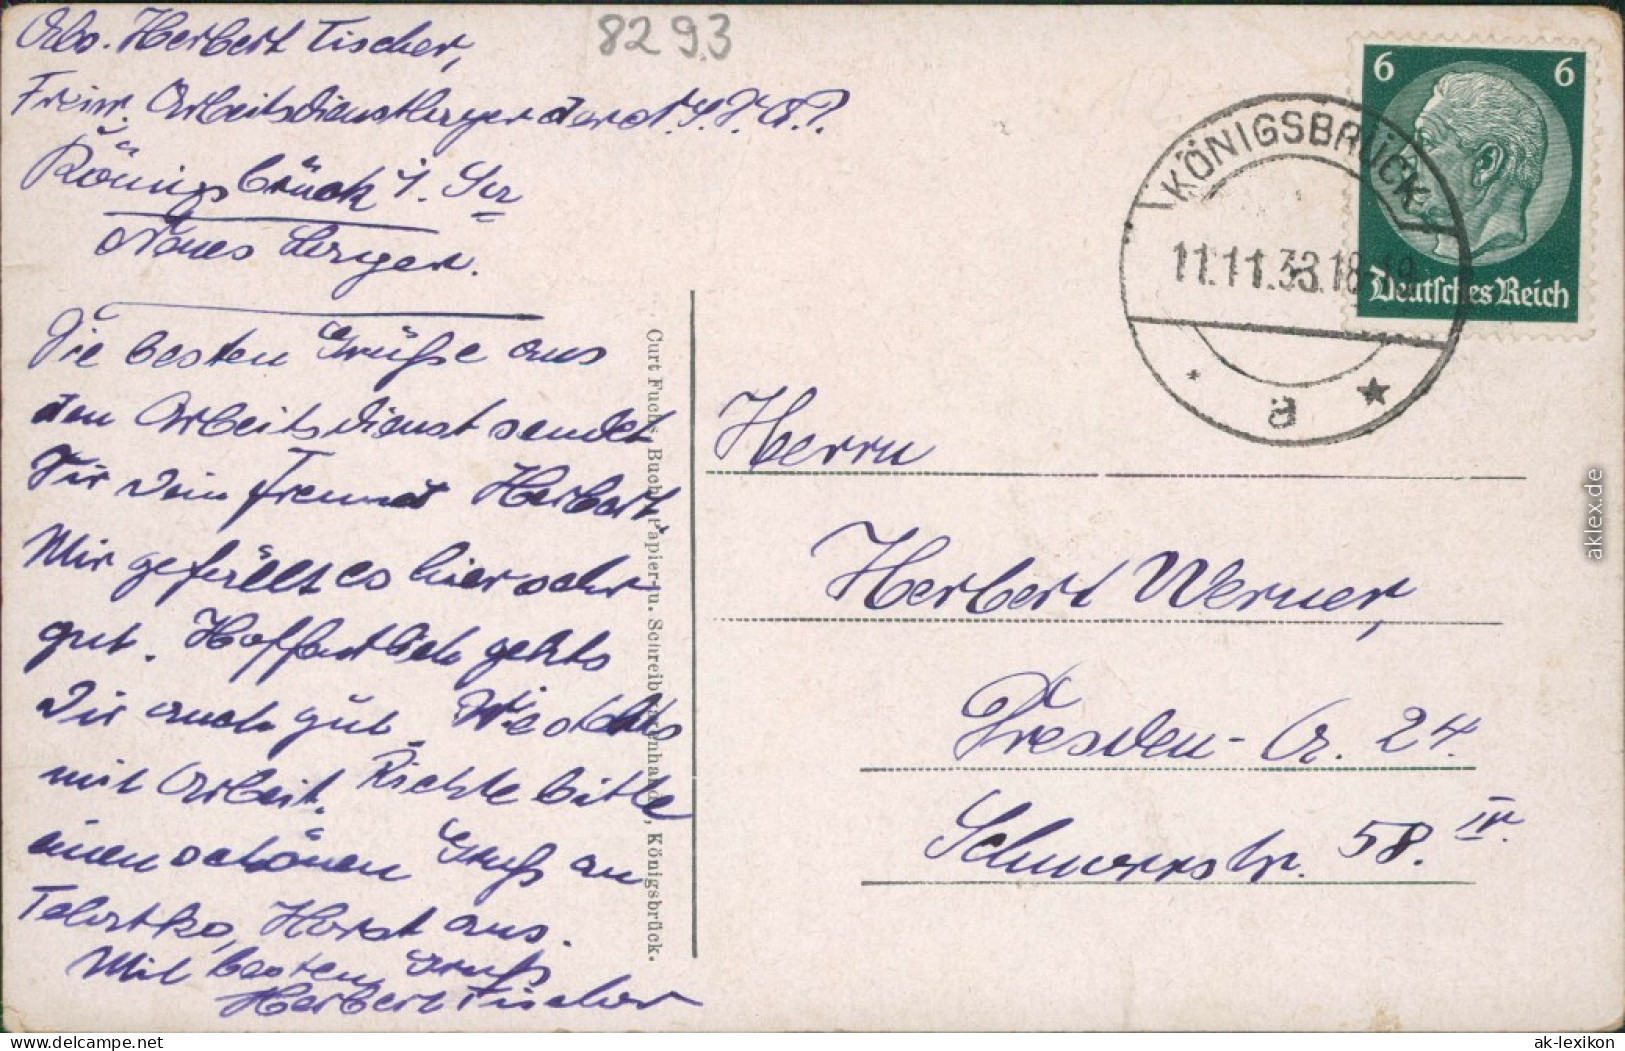 Abs. Herbert Tischer,
Freiw. Arbeitsdienstlager der
Königsbrück i. Sa
Neues Lager.
Die besten Grüße aus
dem Arbeitsdienst sendet
Dir Dein Freund Herbert.
Mir gefällt es hier sehr
gut. Hoffentlich gehts
Dir auch gut. Wie stehts
mit Arbeit. Richte bitte
einen schönen Gruß an
Horst aus.
Mit besten Gruß
Herbert Tischer
8293
Curt Fuchs, Buch-, Papier- u. Schreibwarenhandlg., Königsbrück.
6 6
Deutsches Reich
KÖNIGSBRÜCK
11.11.33.18-19
a
Herrn
Herbert Werner,
Dresden- A. 24.
Schnorrstr. 58. IV.
aklex.de
My-postcard.com
ak-lexikon